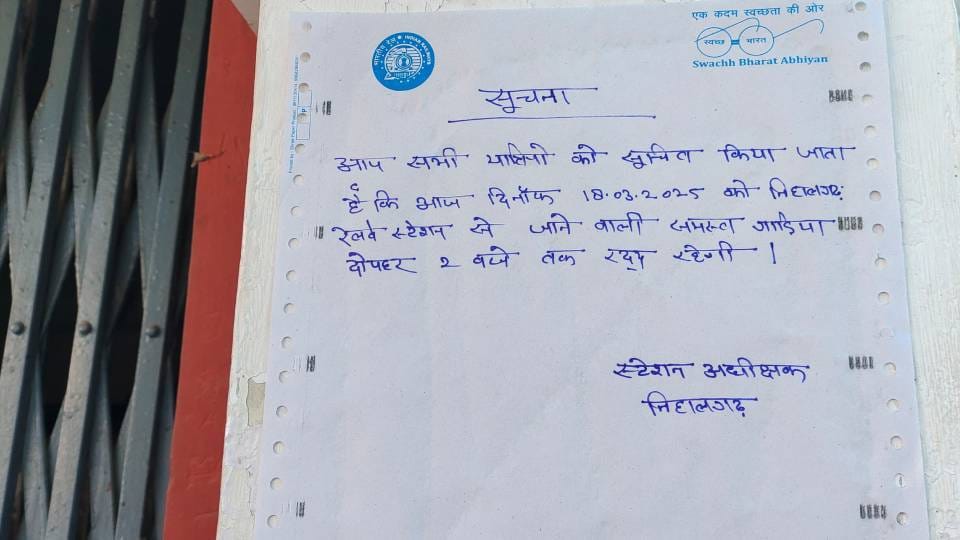 एक कदम स्वच्छता की ओर
स्वच्छ भारत
Swachh Bharat Abhiyan
भारतीय रेल INDIAN RAILWAYS
सूचना
आप सभी यात्रियो को सूचित किया जाता
है कि आज दिनाँक 18.03.2025 को निहालगढ़
रेलवे स्टेशन से जाने वाली समस्त गाडिया
दोपहर 2 बजे तक रद्द रहेगी ।
स्टेशन अधीक्षक
निहालगढ़